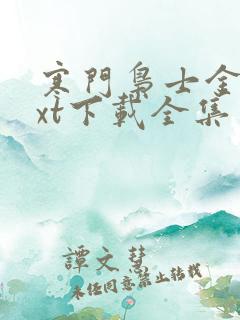 寒門梟士全
xt下載全集
譚文慧
未經同意禁止轉載